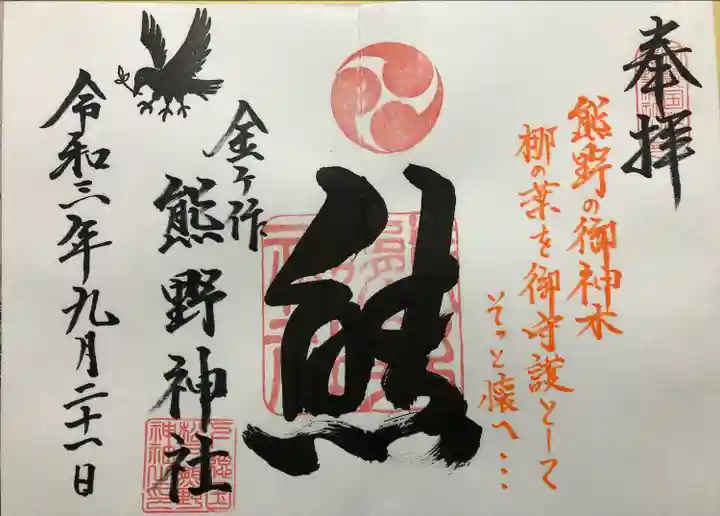 奉拝
熊野の御神木
梛の葉を御守護として
そっと懐へ…
熊
金子作
熊野神社
令和三年九月二十一日